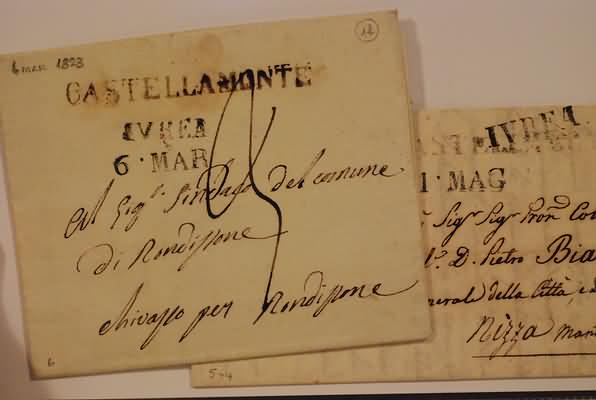 6 MAR 1823
12
CASTELLAMONTE
IVREA
6 · MAR
Al Sigr. Sindaco del comune
di Rondissone
chivasso per Rondissone
6
IVREA
1 · MAG
Sigr Sigr Pron
D. Pietro Bia
della Città, e
Nizza Mar
544